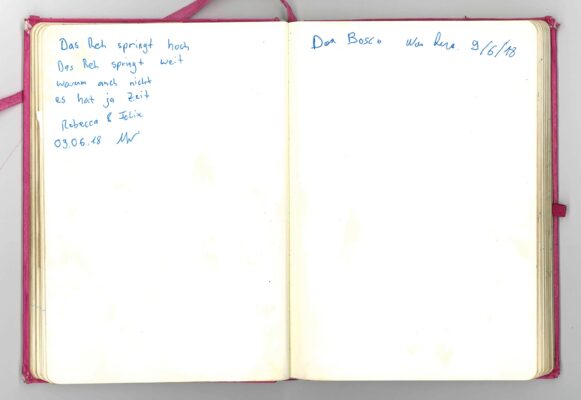 Das Reh springt hoch
Das Reh springt weit
warum auch nicht
es hat ja Zeit
Rebecca & Felix
03.06.18
Don Bosco war hier. 9/6/18